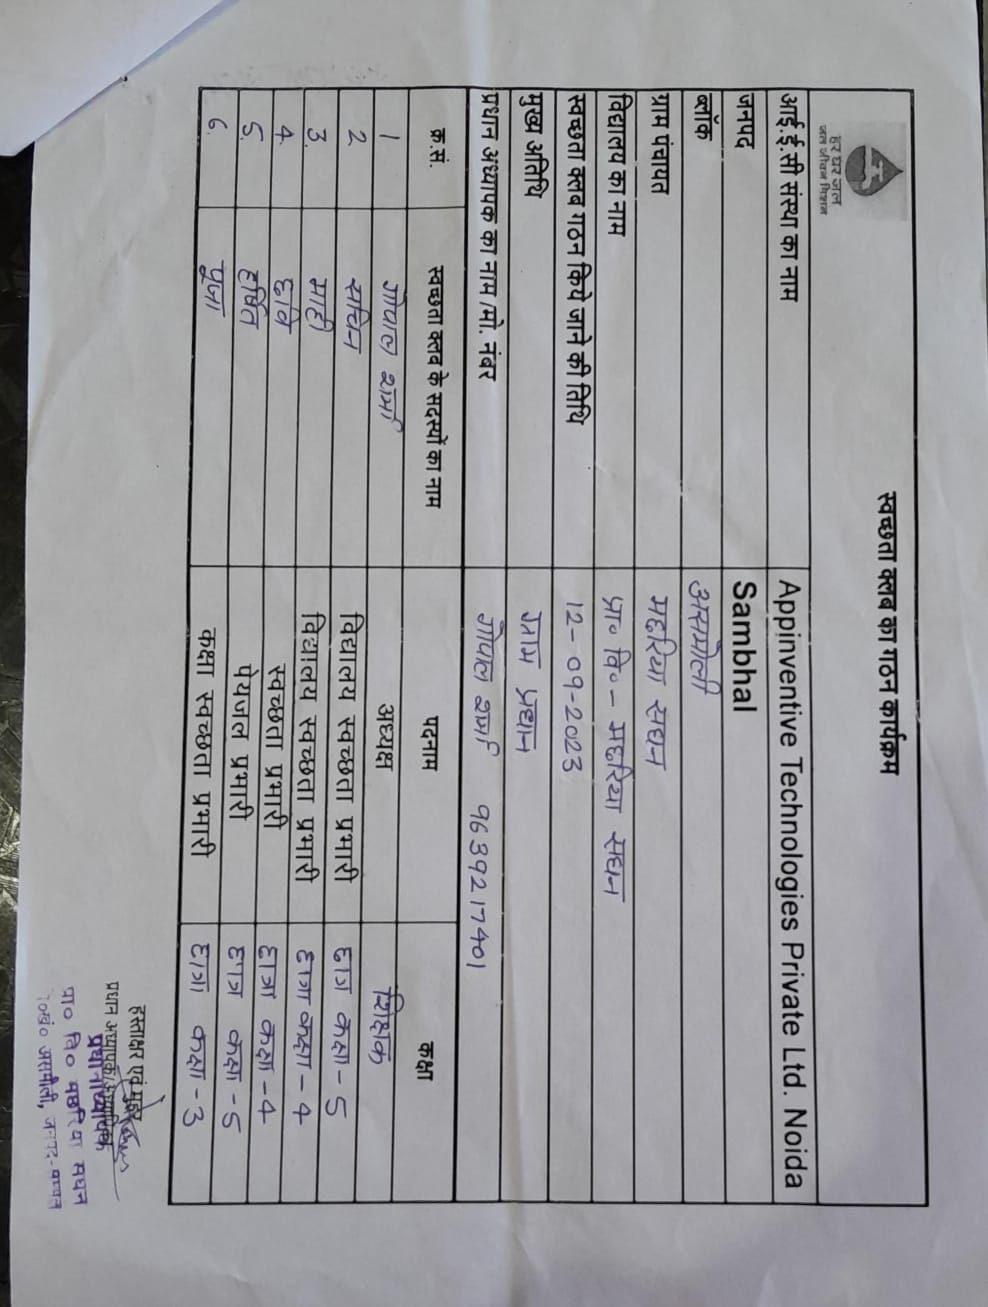 हर घर जल
जल जीवन मिशन
स्वच्छता क्लब का गठन कार्यक्रम
आई.ई.सी संस्था का नाम Appinventive Technologies Private Ltd. Noida
जनपद Sambhal
ब्लॉक असमोली
ग्राम पंचायत मढरिया सघन
विद्यालय का नाम प्रा० वि०- मढरिया सघन
स्वच्छता क्लब गठन किये जाने की तिथि 12-09-2023
मुख्य अतिथि ग्राम प्रधान
प्रधान अध्यापक का नाम /मो. नंबर गोपाल शर्मा 9639217401
क्र.सं. स्वच्छता क्लब के सदस्यों का नाम पदनाम कक्षा
1 गोपाल शर्मा अध्यक्ष शिक्षक
2 सचिन विद्यालय स्वच्छता प्रभारी छात्र कक्षा-5
3. माही विद्यालय स्वच्छता प्रभारी छात्रा कक्षा-4
4. छवि स्वच्छता प्रभारी छात्रा कक्षा-4
5. हर्षित पेयजल प्रभारी छात्र कक्षा-5
6. पूजा कक्षा स्वच्छता प्रभारी छात्रा कक्षा-3
हस्ताक्षर एवं मुहर
प्रधान अध्यापक/
प्रधानाध्यापक
प्रा० वि० मढरिया सघन
असमौली, जनपद-